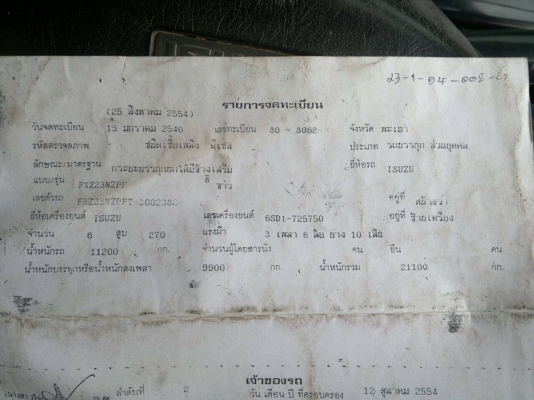 รายการจดทะเบียน
(25 สิงหาคม 2554)
วันจดทะเบียน 13 มกราคม 2540 เลขทะเบียน 80 - 3062 จังหวัด พะเยา
รหัสตรวจสภาพ ชนิดเชื้อเพลิง ดีเซล ประเภท รถบรรทุก ส่วนบุคคล
ลักษณะ/มาตรฐาน กระบะบรรทุกยกได้มีข้างเสริม ยี่ห้อรถ ISUZU
แบบ/รุ่น FXZ23NZPF สี ขาว
เลขตัวรถ อยู่ที่
ยี่ห้อเครื่องยนต์ ISUZU เลขเครื่องยนต์ 6SD1-725750 อยู่ที่ ซ้ายเครื่อง
จำนวน 6 สูบ 270 แรงม้า 3 เพลา 6 ล้อ ยาง 10 เส้น
น้ำหนักรถ 11200 กก. จำนวนผู้โดยสารนั่ง คน ยืน คน
น้ำหนักบรรทุกหรือน้ำหนักลงเพลา 9900 กก. น้ำหนักรวม 21100 กก.
เจ้าของรถ
ลำดับที่ 2 วัน เดือน ปี ที่ครอบครอง 12 ตุลาคม 2554